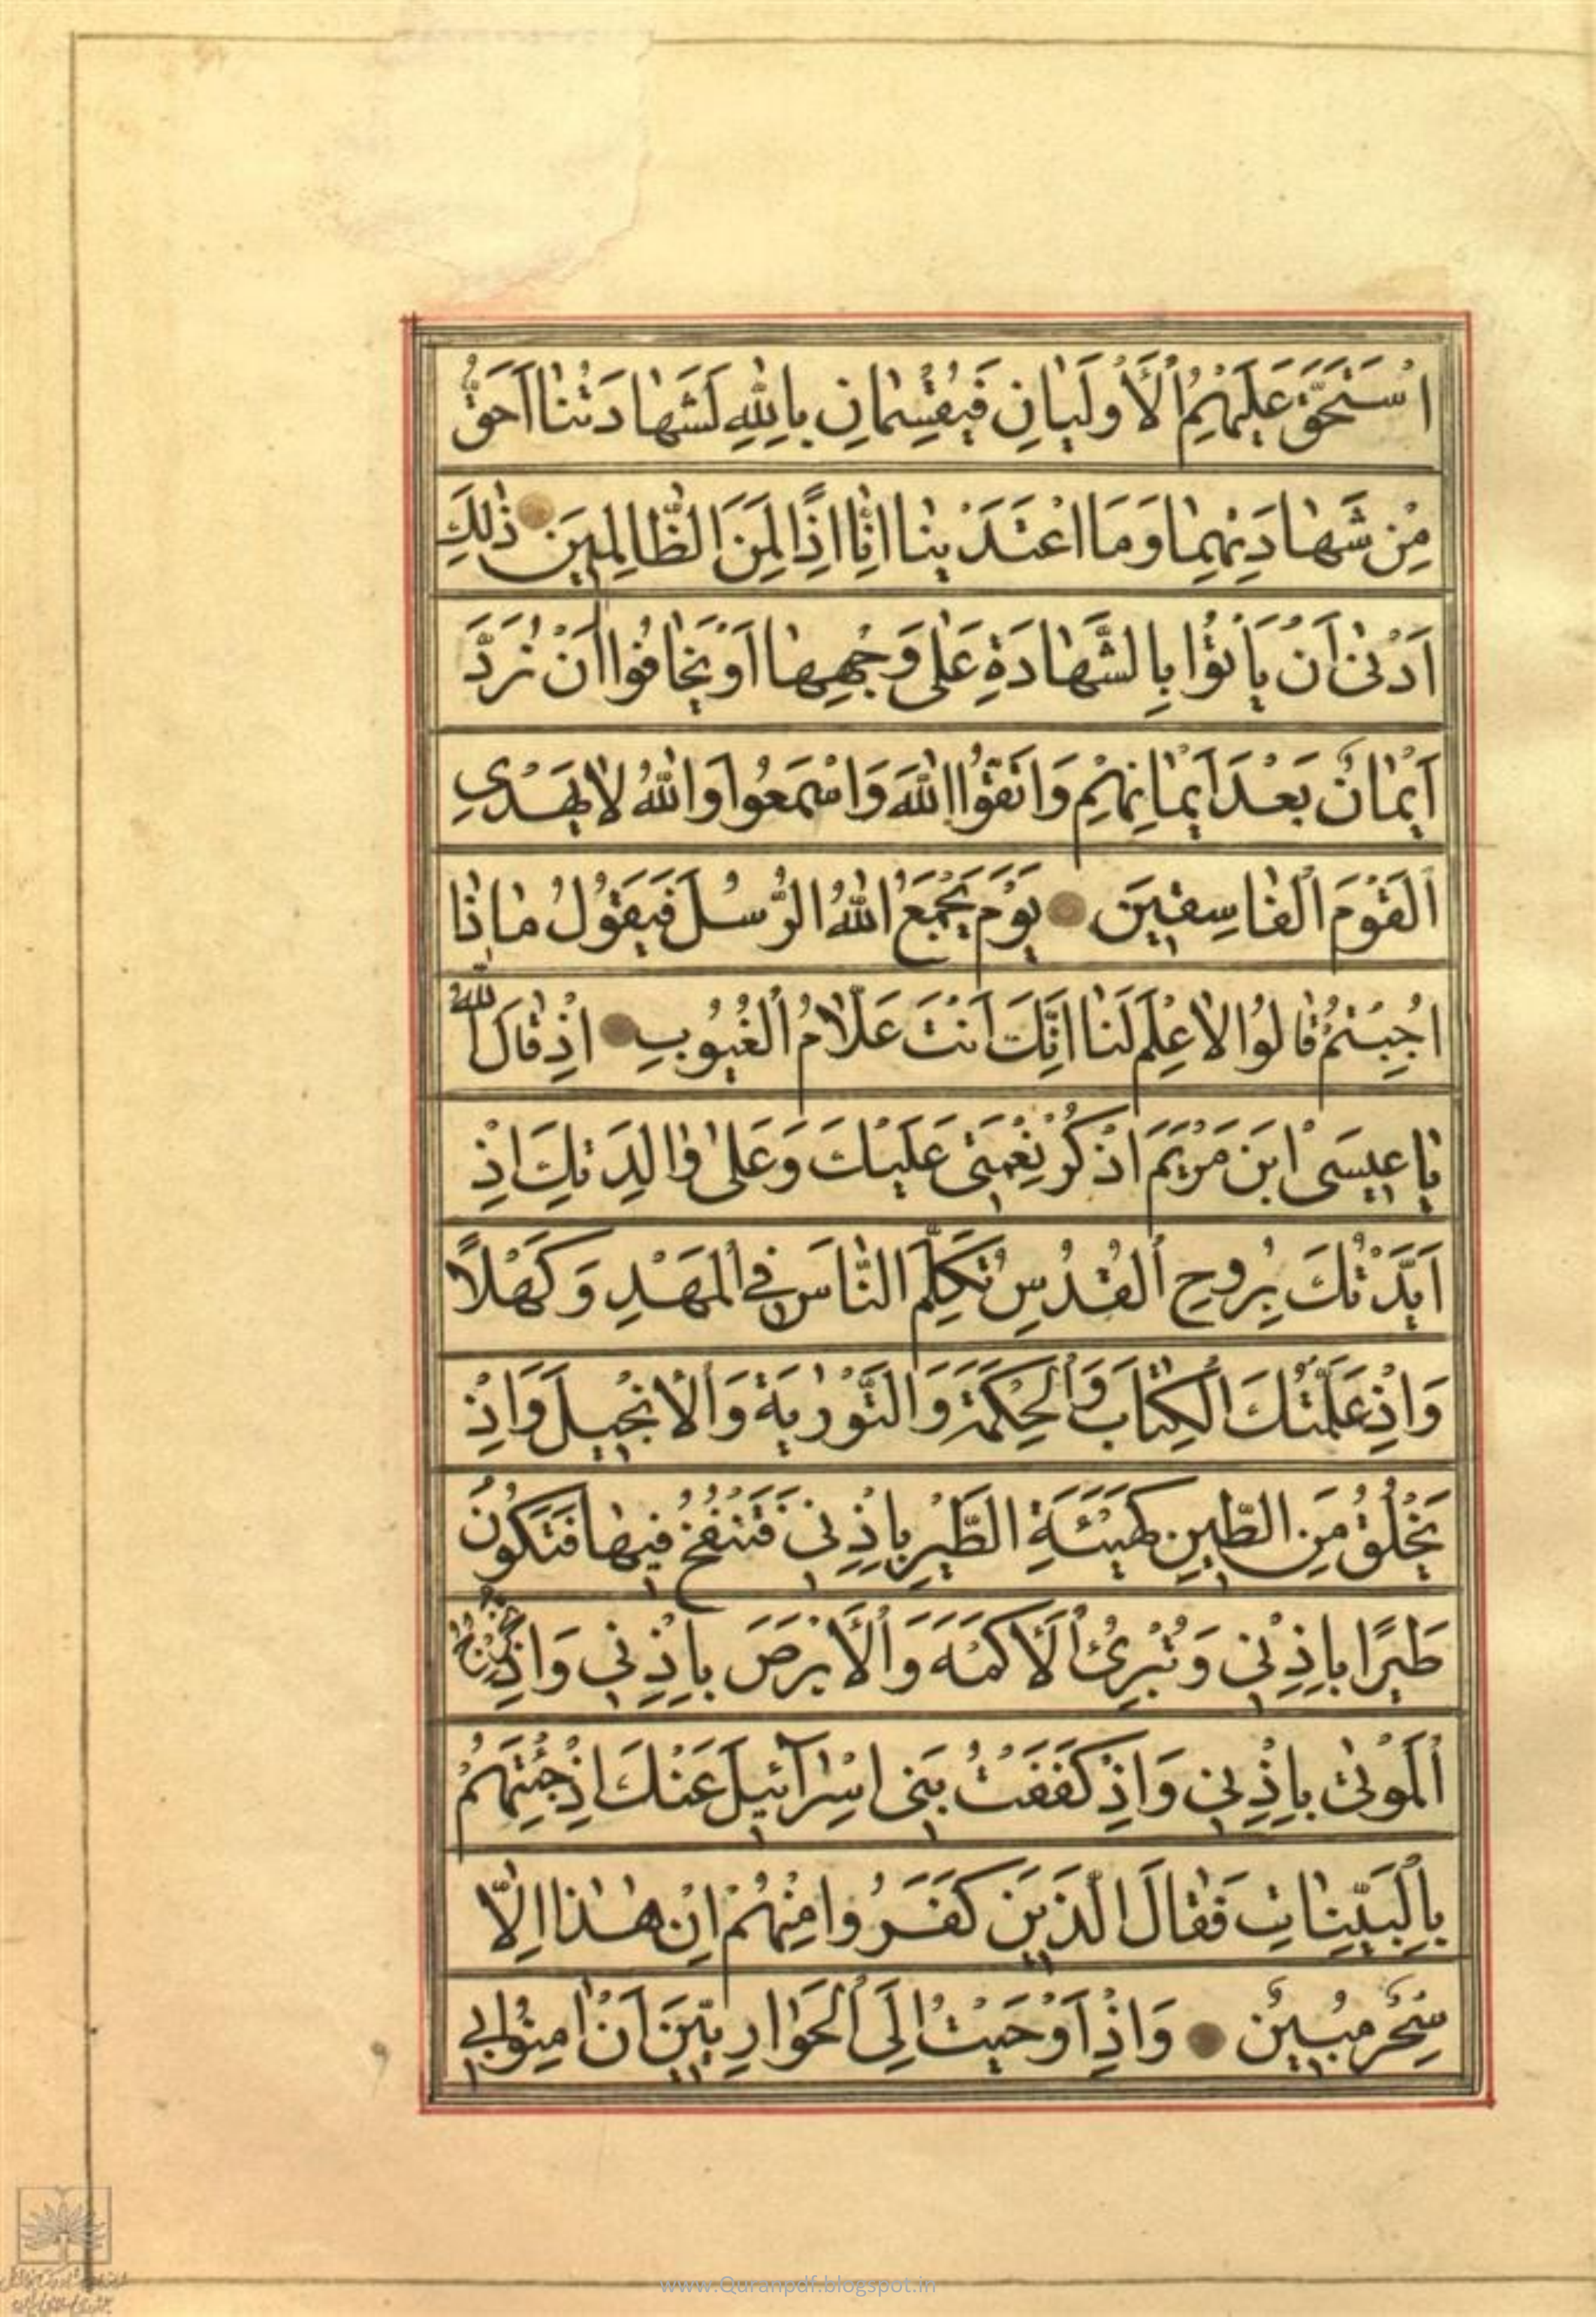 اسْتَحَقَّ عَلَيْهِمُ الْأَوْلَيَانِ فَيُقْسِمَانِ بِاللَّهِ لَشَهَادَتُنَا أَحَقُّ
مِنْ شَهَادَتِهِمَا وَمَا اعْتَدَيْنَا إِنَّا إِذًا لَمِنَ الظَّالِمِينَ ذَلِكَ
أَدْنَى أَنْ يَأْتُوا بِالشَّهَادَةِ عَلَى وَجْهِهَا أَوْ يَخَافُوا أَنْ تُرَدَّ
أَيْمَانٌ بَعْدَ أَيْمَانِهِمْ وَاتَّقُوا اللَّهَ وَاسْمَعُوا وَاللَّهُ لَا يَهْدِي
الْقَوْمَ الْفَاسِقِينَ يَوْمَ يَجْمَعُ اللَّهُ الرُّسُلَ فَيَقُولُ مَاذَا
أُجِبْتُمْ قَالُوا لَا عِلْمَ لَنَا إِنَّكَ أَنْتَ عَلَّامُ الْغُيُوبِ إِذْ قَالَ اللَّهُ
يَا عِيسَى ابْنَ مَرْيَمَ اذْكُرْ نِعْمَتِي عَلَيْكَ وَعَلَى وَالِدَتِكَ إِذْ
أَيَّدْتُكَ بِرُوحِ الْقُدُسِ تُكَلِّمُ النَّاسَ فِي الْمَهْدِ وَكَهْلًا
وَإِذْ عَلَّمْتُكَ الْكِتَابَ وَالْحِكْمَةَ وَالتَّوْرٰيةَ وَالْإِنْجِيلَ وَإِذْ
تَخْلُقُ مِنَ الطِّينِ كَهَيْئَةِ الطَّيْرِ بِإِذْنِي فَتَنْفُخُ فِيهَا فَتَكُونُ
طَيْرًا بِإِذْنِي وَتُبْرِئُ الْأَكْمَهَ وَالْأَبْرَصَ بِإِذْنِي وَإِذْ تُخْرِجُ
الْمَوْتَى بِإِذْنِي وَإِذْ كَفَفْتُ بَنِي إِسْرَائِيلَ عَنْكَ إِذْ جِئْتَهُمْ
بِالْبَيِّنَاتِ فَقَالَ الَّذِينَ كَفَرُوا مِنْهُمْ إِنْ هَذَا إِلَّا
سِحْرٌ مُبِينٌ وَإِذْ أَوْحَيْتُ إِلَى الْحَوَارِيِّينَ أَنْ آمِنُوا بِي
www.Quranpdf.blogspot.in